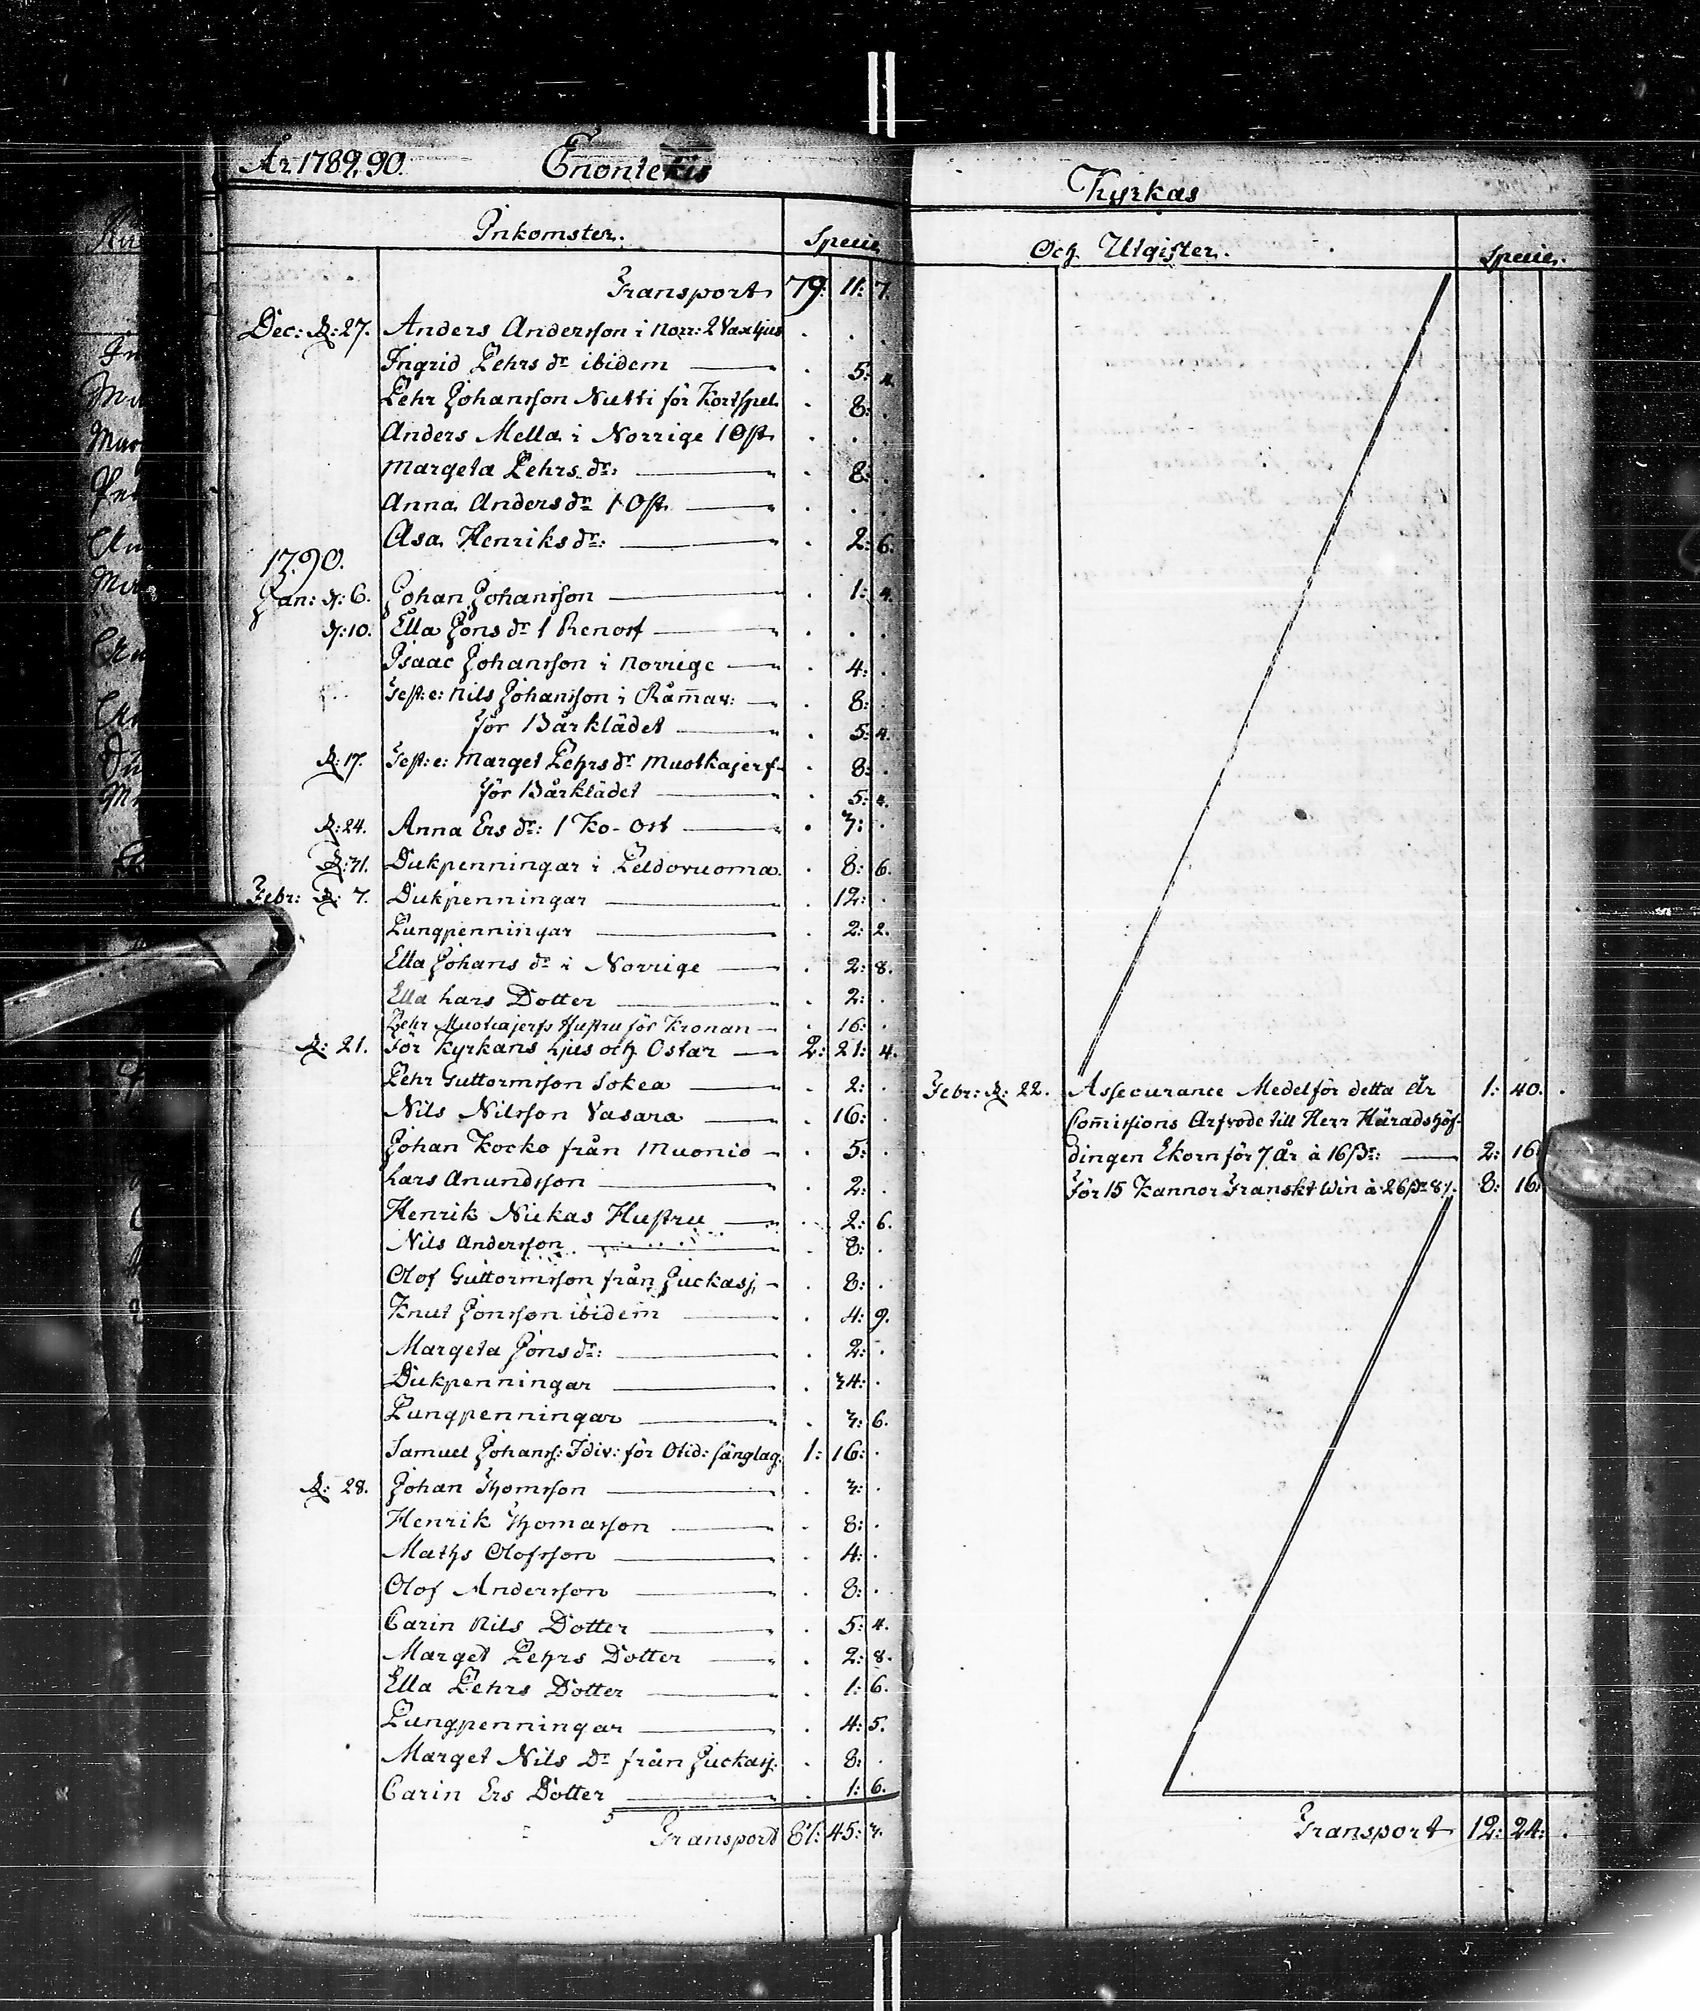 År 1789, 90. Enontekis
Inkomster. Specie
Transport 79: 11: 7.
Dec: d: 27. Anders Andersson i Norr: 2 Vaxljus . . .
Ingrid Pehrs dr ibidem . 5: 4.
Pehr Johansson Nutti för Kortspel . 8: .
Anders Mella i Norrige 1 Ost . . .
Margeta Pehrs dr: . 8: .
Anna Anders dr 1 Ost . . .
Asa Henriks dr: . 2: 6.
1790.
Jan: d: 6. Johan Johansson . 1: 4.
d: 10. Ella Jons dr 1 Renost . . .
Isaac Johansson i Norrige . 4: .
Test: e: Nils Johansson i Råm̄av: . 8: .
för Bårklädet . 5: 4.
d: 17. Test: e: Marget Pehrs dr Muotkajerf . 8: .
för Bårklädet . 5: 4.
d: 24. Anna Ers dr: 1 Ko-Ost . 3: .
d: 31. Dukpenningar i Peldovuoma . 8: 6.
Febr: d: 7. Dukpenningar . 12: .
Pungpenningar . 2: 2.
Ella Johans dr i Norrige . 2: 8.
Ella Lars Dotter . 2: .
Pehr Muotkajerfs Hustru för Kronan . 16: .
d: 21. För Kyrkans Ljus och Ostar 2: 21: 4.
Pehr Guttormsson Sokea . 2: .
Nils Nilsson Vasara . 16: .
Johan Kocko från Muonio . 5: .
Lars Anundsson . 2: .
Henrik Niekas Hustru . 2: 6.
Nils Andersson . 8: .
Olof Guttormsson från Juckasj. . 8: .
Knut Jonsson ibidem . 4: 9.
Margeta Jons dr: . 2: .
Dukpenningar . 34: .
Pungpenningar . 3: 6.
Samuel Johans: för Otid: sänglag. 1: 16: .
d: 28. Johan Thomsson . 3: .
Henrik Thomasson . 8: .
Maths Olofsson . 4: .
Olof Andersson . 8: .
Carin Nils Dotter . 5: 4.
Marget Pehrs Dotter . 2: 8.
Ella Pehrs Dotter . 1: 6.
Pungpenningar . 4: 5.
Marget Nils Dr från Juckasj. . 8: .
Carin Ers Dotter . 1: 6.
Transport 87: 45: 3.
Kyrkas
Och Utgifter. Specie.
Febr: d: 22. Assecurance Medel för detta År 1: 40: .
Com̄issions Arfvode till Herr Häradshöf-
dingen Ekorn för 7 år à 16 sk: 2: 16
För 15 Kannor Franskt Win à 26 sk 8 8: 16:
Transport 12: 24: .